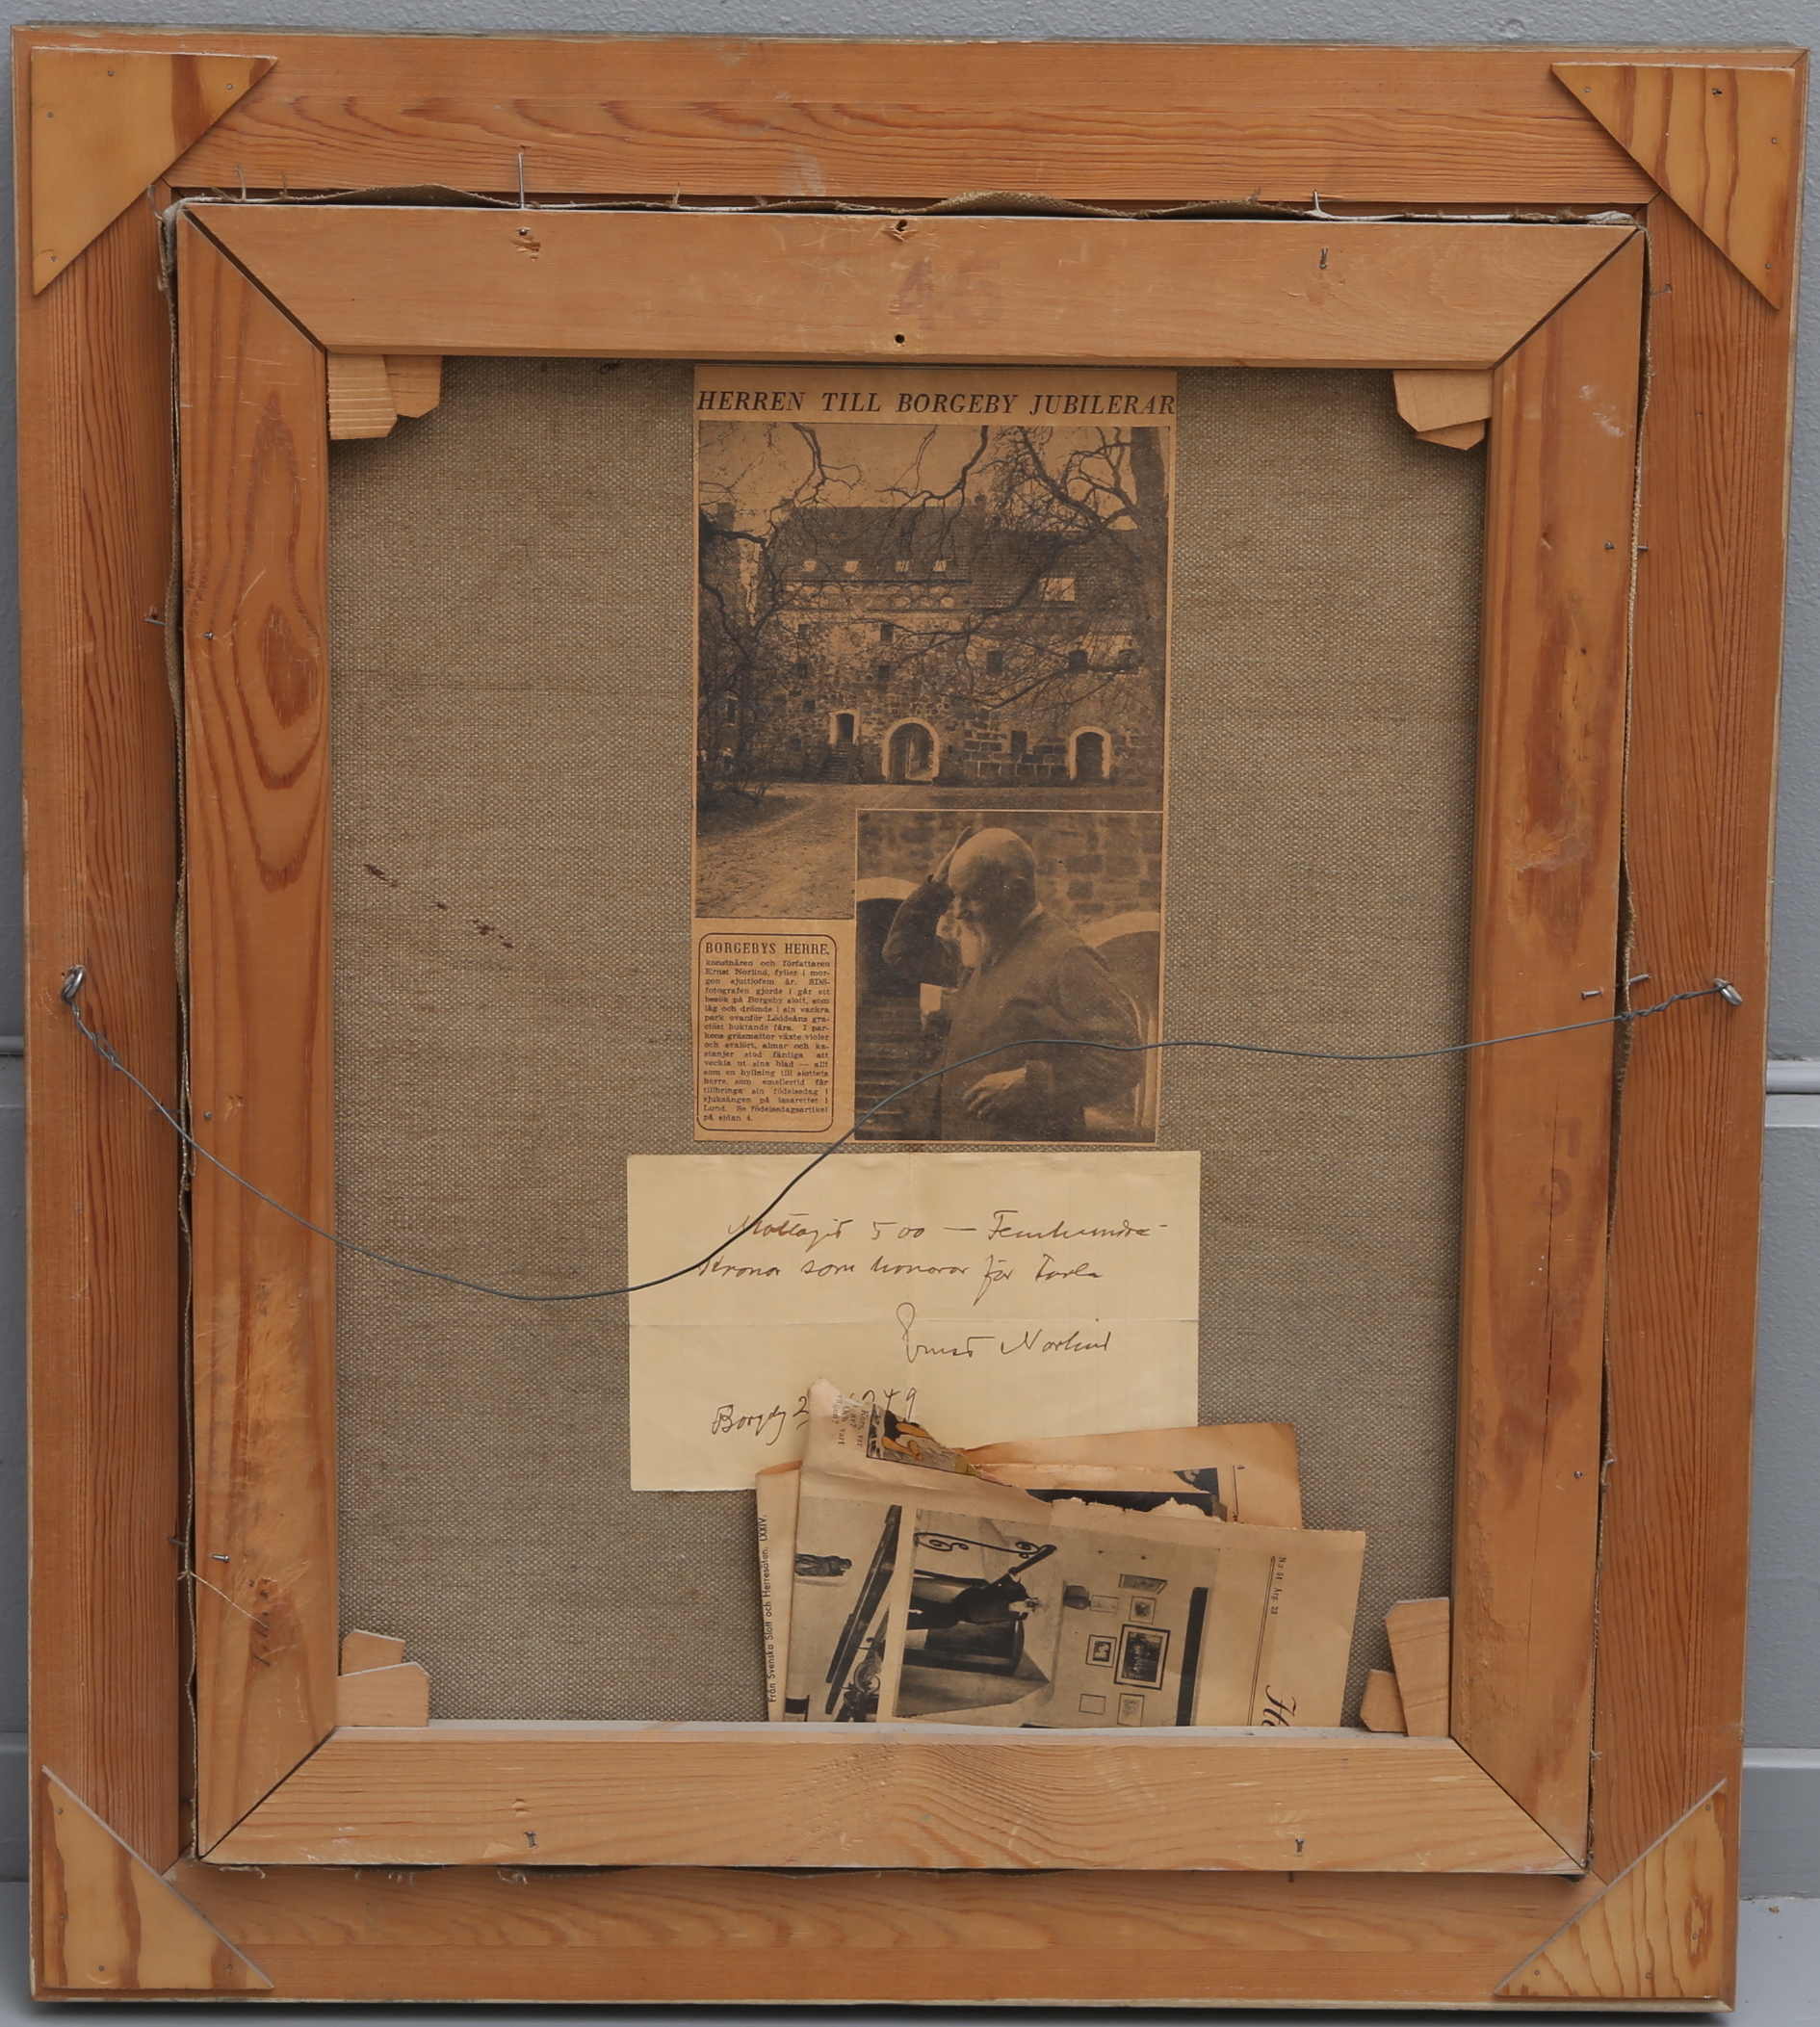 45
HERREN TILL BORGEBY JUBILERAR
BORGEBYS HERRE,
konstnären och författaren
Ernst Norlind, fyller i mor-
gon sjuttiofem år. SDS-
fotografen gjorde i går ett
besök på Borgeby slott, som
låg och drömde i sin vackra
park ovanför Löddeåns gra-
ciöst buktande fåra. I par-
kens gräsmattor växte violer
och svalört, almar och ka-
stanjer stod färdiga att
veckla ut sina blad — allt
som en hyllning till slottets
herre, som emellertid får
tillbringa sin födelsedag i
sjuksängen på lasarettet i
Lund. Se födelsedagsartikel
på sidan 4.
Mottagit 500 — Femhundra-
kronor som honorar för Tavla
Ernst Norlind
Borgeby 2 49
Från Svenska Slott och Herresäten. LXXIV.
N:r 51 Årg 23